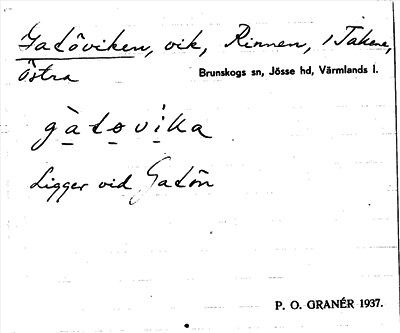 Gatöviken, vik, Rinnen, i Takene,
Östra
Brunskogs sn, Jösse hd, Värmlands l.
gàtovika
Ligger vid Gatön
P. O. GRANÉR 1937.